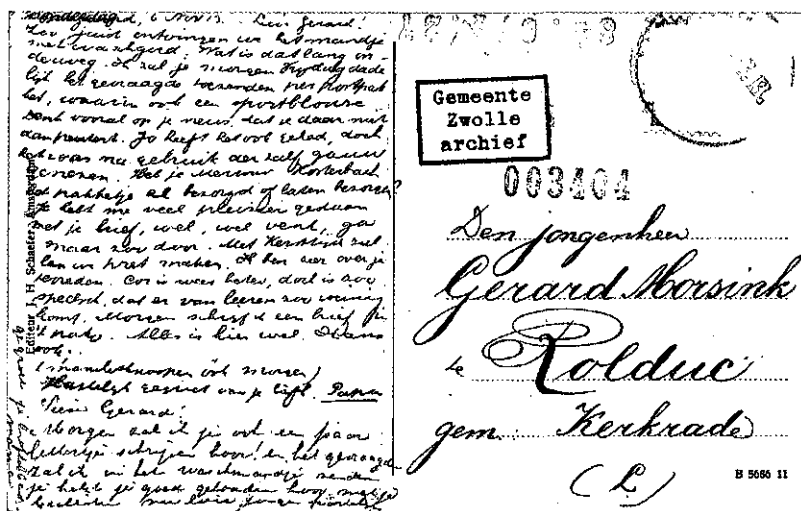 Donderdag, 6 Nov. 13. Lieve Gerard!
Zoo juist ontvingen we het mandje
met waschgoed. Wat is dat lang on-
derweg. Ik zal je morgen Vrijdag dade
lijk het gevraagde toezenden per postpak
ket, waarin ook een sportblouse.
Denk vooral op je neus, dat je daar niet
aan peutert. Jo heeft het ook gehad, doch
het was na gebruik der zalf gauw
genezen. Heb je Mevrouw Kosterbach
't pakketje al bezorgd of laten bezorgen?
Je hebt me veel pleizier gedaan
met je brief, wel, wel vent, ga
maar zoo door. Met Kersttijd zul
len we pret maken. Ik ben zeer over je
tevreden. Cor is weer beter, doch is zoo
speelsch, dat er van leeren zoo weinig
komt. Morgen schrijf ik een brief
Alles is hier wel.
ook.
(manchetknoopen ook morgen)
Hartelijk gegroet van je liefh. Papa
Lieve Gerard!
Morgen zal ik je ook een paar
lettertjes schrijven hoor! en het gevraagde
zal ik in het waschmandje zenden
je hebt je goed gehouden hoor
Editeur J. H. Schaefer, Amsterdam
Gemeente
Zwolle
archief
003404
Den jongenheer
Gerard Morsink
te Rolduc
gem. Kerkrade
(L)
B 5665 11